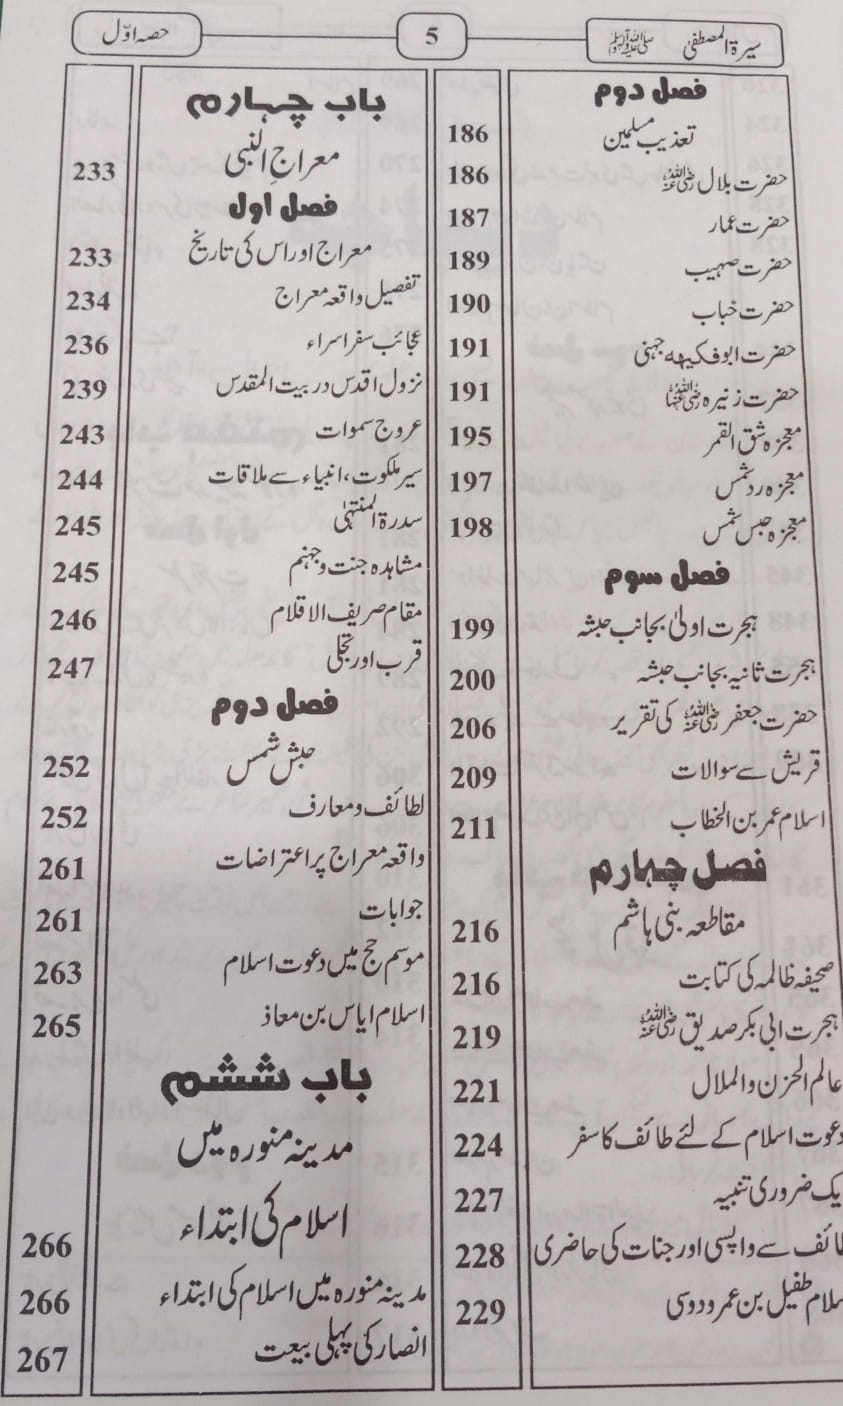 سیرۃ المصطفیٰ ﷺ
5
حصہ اوّل
فصل دوم
تعذیب مسلمین 186
حضرت بلال رضی اللہ عنہ 186
حضرت عمار 187
حضرت صہیب 189
حضرت خباب 190
حضرت ابو فکیہہ جہنی 191
حضرت زنیرہ رضی اللہ عنہا 191
معجزہ شق القمر 195
معجزہ رد شمس 197
معجزہ حبس شمس 198
فصل سوم
ہجرت اولیٰ بجانب حبشہ 199
ہجرت ثانیہ بجانب حبشہ 200
حضرت جعفر رضی اللہ عنہ کی تقریر 206
قریش سے سوالات 209
اسلام عمر بن الخطاب 211
فصل چہارم
مقاطعہ بنی ہاشم 216
صحیفہ ظالمہ کی کتابت 216
ہجرت ابی بکر صدیق رضی اللہ عنہ 219
عالم الحزن والملال 221
دعوت اسلام کے لئے طائف کا سفر 224
یک ضروری تنبیہ 227
ائف سے واپسی اور جنات کی حاضری 228
سلام طفیل بن عمرو دوسی 229
باب چہارم
معراج النبی 233
فصل اول
معراج اور اس کی تاریخ 233
تفصیل واقعہ معراج 234
عجائب سفر اسراء 236
نزول اقدس در بیت المقدس 239
عروج سموات 243
سیر ملکوت، انبیاء سے ملاقات 244
سدرۃ المنتہیٰ 245
مشاہدہ جنت و جہنم 245
مقام صریف الاقلام 246
قرب اور تجلی 247
فصل دوم
حبش شمس 252
لطائف و معارف 252
واقعہ معراج پر اعتراضات 261
جوابات 261
موسم حج میں دعوت اسلام 263
اسلام ایاس بن معاذ 265
باب ششم
مدینہ منورہ میں
اسلام کی ابتداء 266
مدینہ منورہ میں اسلام کی ابتداء 266
انصار کی پہلی بیعت 267